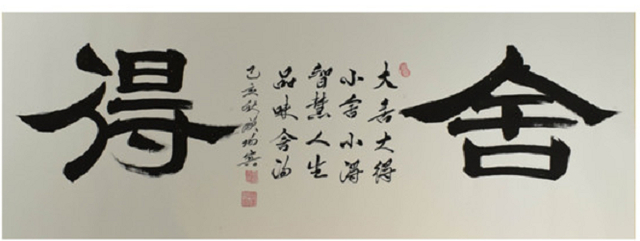 舍得
大舍大得
小舍小得
智慧人生
品味舍得
己亥秋